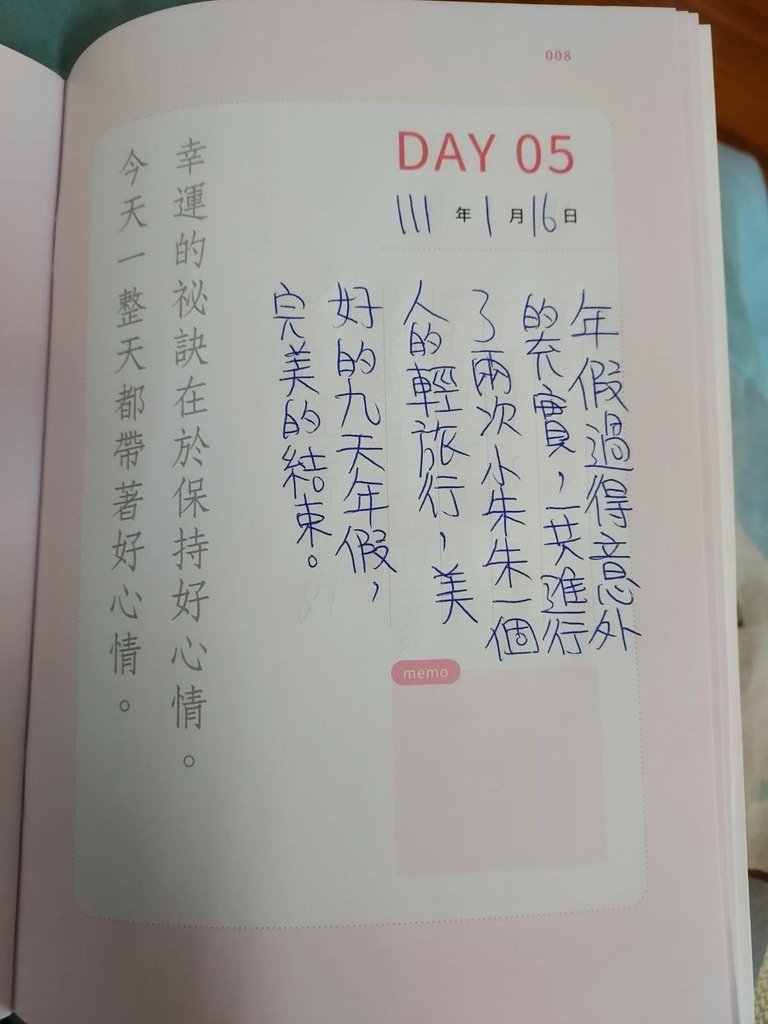 008
DAY 05
111年1月16日
年假過得意外
的充實,一共進行
了兩次小朱朱一個
人的輕旅行,美
好的九天年假,
完美的結束。
memo
幸運的祕訣在於保持好心情。
今天一整天都帶著好心情。